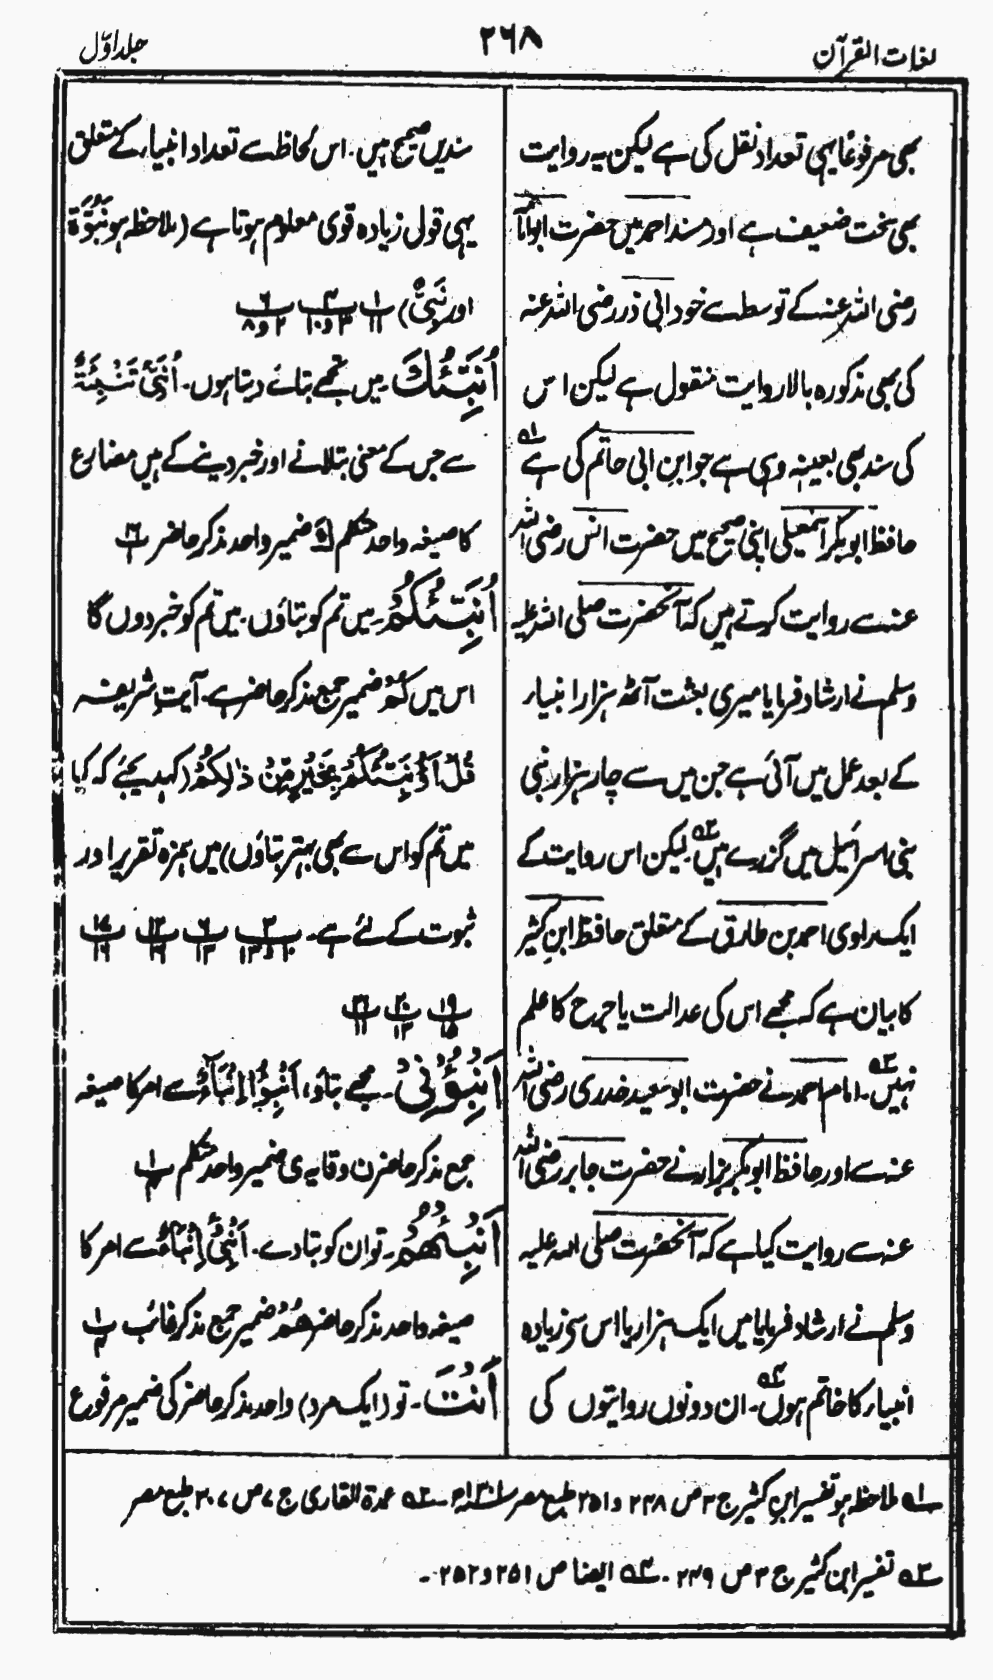 لغات القرآن
۲۶۸
جلد اوّل
بھی مرفوعًا یہی تعداد نقل کی ہے لیکن یہ روایت
بھی سخت ضعیف ہے اور مسند احمد میں حضرت ابو امامہ
رضی اللہ عنہ کے توسط سے خود ابی ذر رضی اللہ عنہ
کی بھی مذکورہ بالا روایت منقول ہے لیکن اس
کی سند بھی بعینہ وہی ہے جو ابن ابی حاتم کی ہے ۱؎
حافظ ابو بکر اسمٰعیلی اپنی صحیح میں حضرت انس رضی اللہ
عنہ سے روایت کرتے ہیں کہ آنحضرت صلی اللہ علیہ
وسلم نے ارشاد فرمایا میری بعثت آٹھ ہزار انبیار
کے بعد عمل میں آئی ہے جن میں سے چار ہزار نبی
بنی اسرائیل میں گزرے ہیں ۲؎ لیکن اس روایت کے
ایک راوی احمد بن طارق کے متعلق حافظ ابنِ کثیر
کا بیان ہے کہ مجھے اس کی عدالت یا جرح کا علم
نہیں ۳؎۔ امام احمد نے حضرت ابو سعید خدری رضی اللہ
عنہ سے اور حافظ ابو بکر بزار نے حضرت جابر رضی اللہ
عنہ سے روایت کیا ہے کہ آنحضرت صلی اللہ علیہ
وسلم نے ارشاد فرمایا میں ایک ہزار یا اس سے زیادہ
انبیار کا خاتم ہوں ۴؎۔ ان دونوں روایتوں کی
سندیں صحیح ہیں۔ اس لحاظ سے تعداد انبیار کے متعلق
یہی قول زیادہ قوی معلوم ہوتا ہے (ملاحظہ ہو نُبُوَّۃ
اور نَبِیٌّ) پ۱ ۱۱ پ۳ ۳ و ۱۰ پ۶ ۲ و ۸
اُنَبِّئُكَ۔ میں تجھے بتائے دیتا ہوں۔ اُنَبِّئُ تَنْبِئَۃٌ
سے جس کے معنی بتلانے اور خبر دینے کے ہیں مضارع
کا صیغہ واحد متکلم كَ ضمیر واحد مذکر حاضر پ۱۶
اُنَبِّئُكُمْ۔ میں تم کو بتاؤں۔ میں تم کو خبر دوں گا
اس میں كُمْ ضمیر جمع مذکر حاضر ہے۔ آیت شریفہ
قُلْ اَؤُنَبِّئُكُمْ بِخَيْرٍ مِّنْ ذٰلِكُمْ (کہدیجئے کہ کیا
میں تم کو اس سے بھی بہتر بتاؤں) میں ہمزہ تقریر اور
ثبوت کے لئے ہے۔ پ۳ ۱۰ و ۱۳ پ۶ ۱۳ پ۱۳ ۱۶ پ۱۷ ۱۶
پ۱۹ ۱۵ پ۲۰ ۱۲ پ۲۱ ۱۱
اَنْبِؤُنِيْ۔ مجھے بتاؤ، اَنْبِؤُا اِنْبَآءٌ سے امر کا صیغہ
جمع مذکر حاضر ن وقایہ ی ضمیر واحد متکلم پ۱ ۴
اَنْبِئْهُمْ۔ تو ان کو بتا دے۔ اَنْبِئْ اِنْبَاءٌ سے امر کا
صیغہ واحد مذکر حاضر هُمْ ضمیر جمع مذکر غائب پ۱ ۴
اَنْتَ۔ تو (ایک مرد) واحد مذکر حاضر کی ضمیر مرفوع
۱؎ ملاحظہ ہو تفسیر ابن کثیر ج ۳ ص ۲۴۸ و ۲۵۱ طبع مصر ۲؎ عمدۃ القاری ج ۷ ص ۲۰۷ طبع مصر
۳؎ تفسیر ابن کثیر ج ۳ ص ۲۴۹۔ ۴؎ ایضا ص ۲۵۱ و ۲۵۲۔